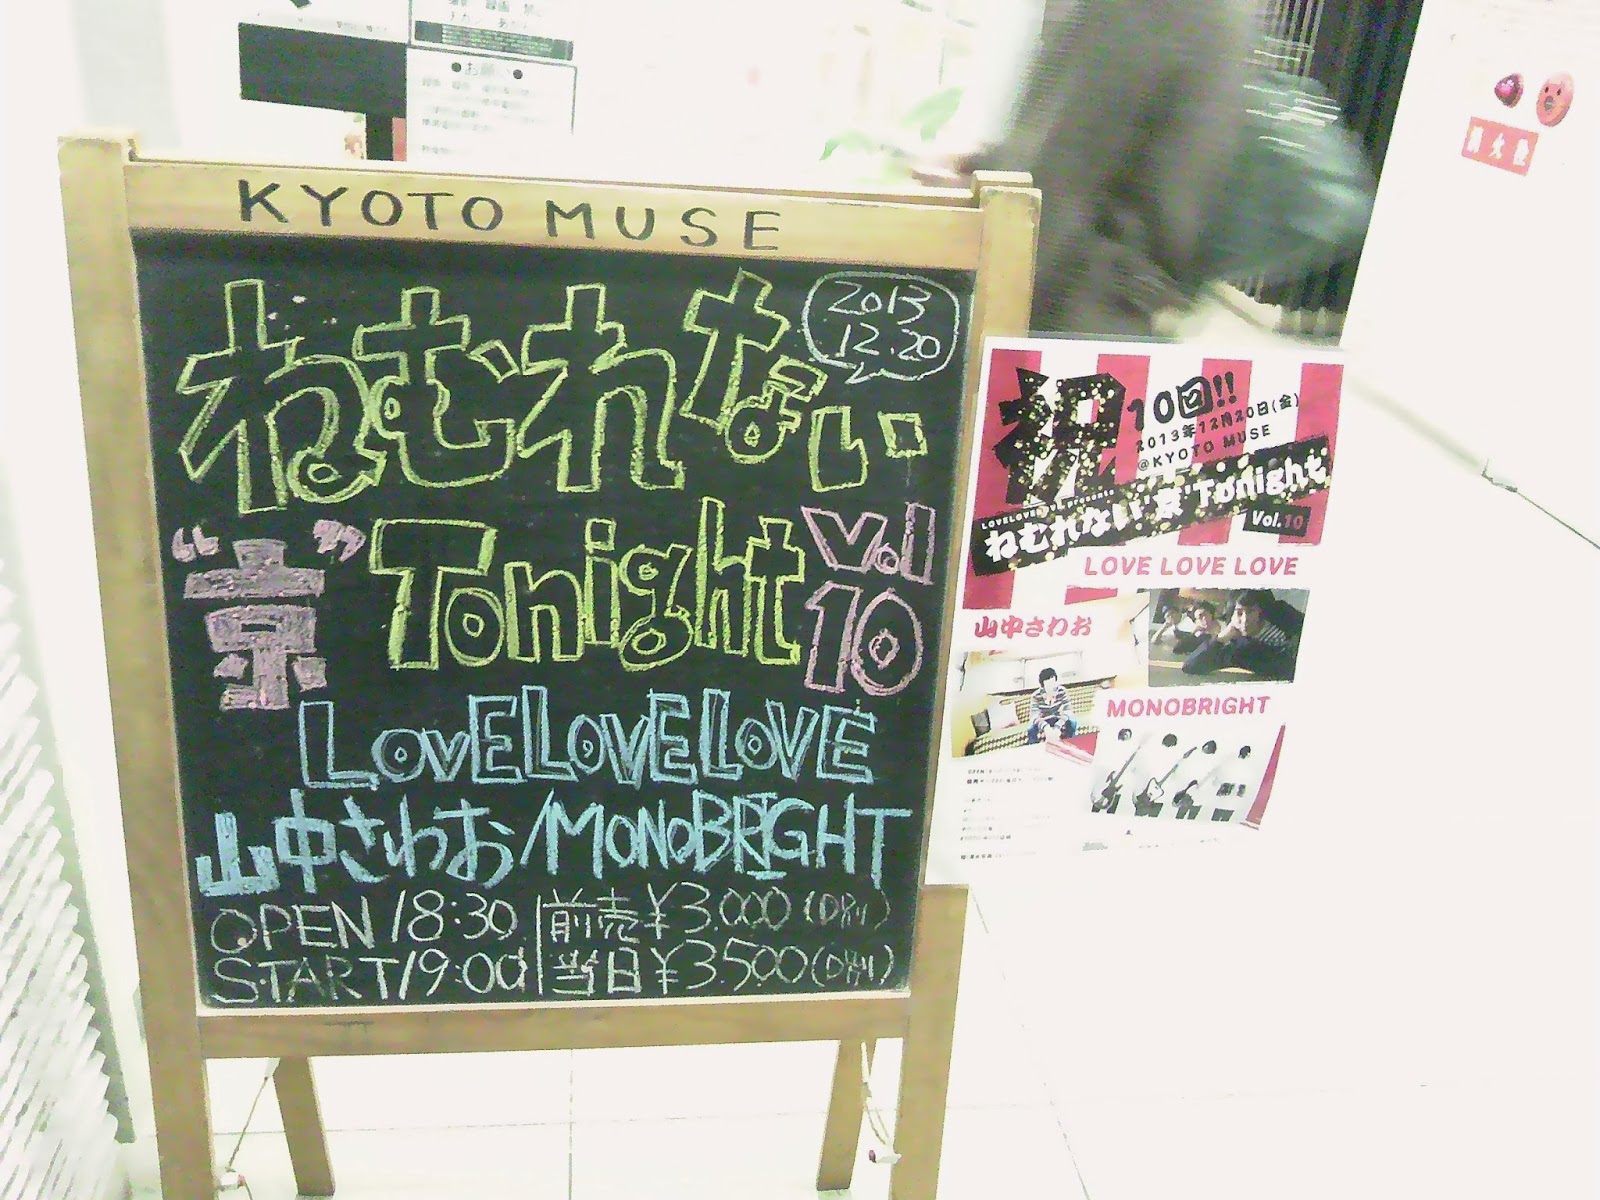 ●お願い●
KYOTO MUSE
2013
12.20
ねむれない
“京” Tonight Vol 10
LOVELOVELOVE
山中さわお/MONOBRIGHT
OPEN/18:30 前売¥3.000(D別)
START/19:00 当日¥3.500(D別)
祝10回!!
2013年12月20日(金)
@KYOTO MUSE
ねむれない"京"Tonight
Vol.10
LOVE LOVE LOVE
山中さわお
MONOBRIGHT